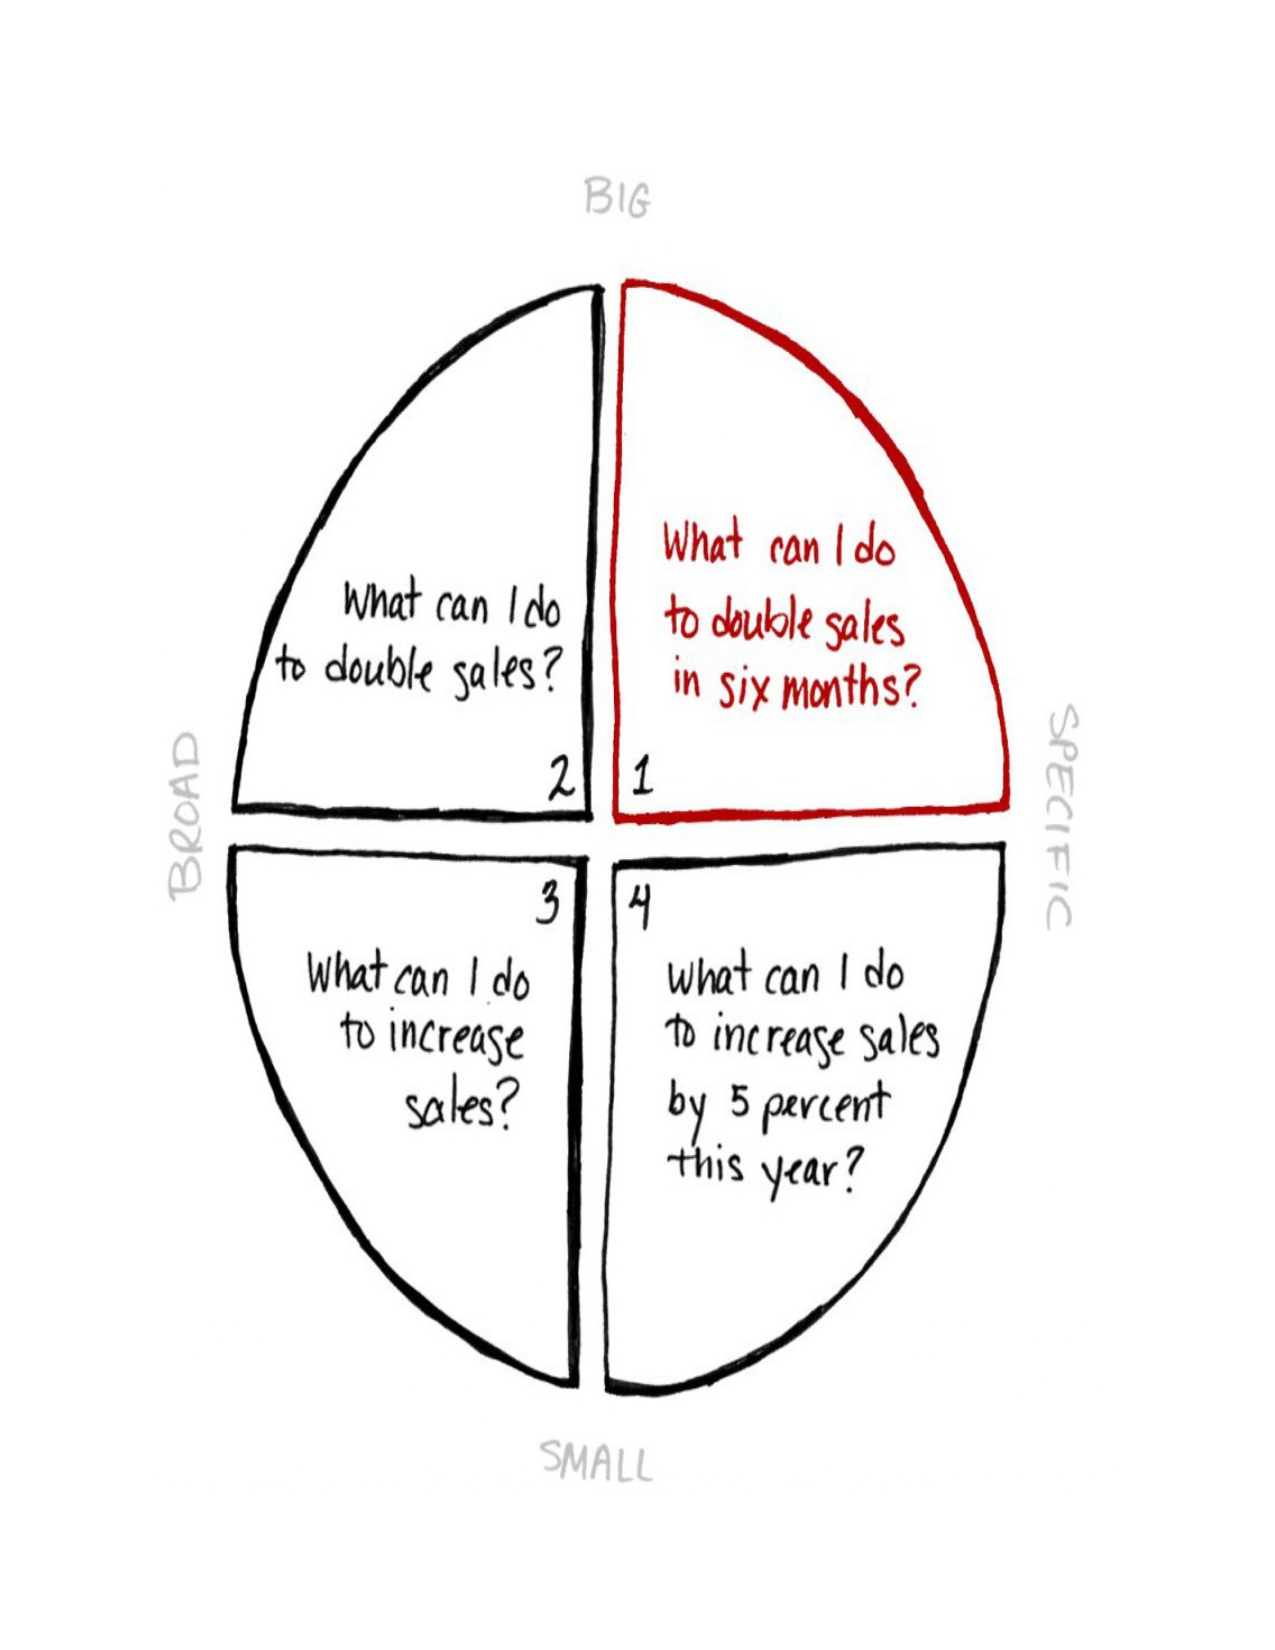 BIG
What can I do
to double sales?
2
What can I do
to double sales
in six months?
1
BROAD
SPECIFIC
3
What can I do
to increase
sales?
4
What can I do
to increase sales
by 5 percent
this year?
SMALL